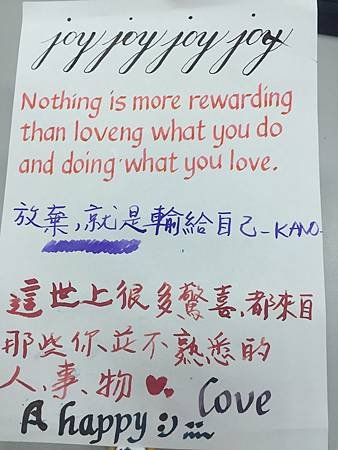 joy joy joy joy
Nothing is more rewarding
than loveng what you do
and doing what you love.
放棄,就是輸給自己-KANO-
這世上很多驚喜,都來自
那些你並不熟悉的
人、事、物 love
A happy :)